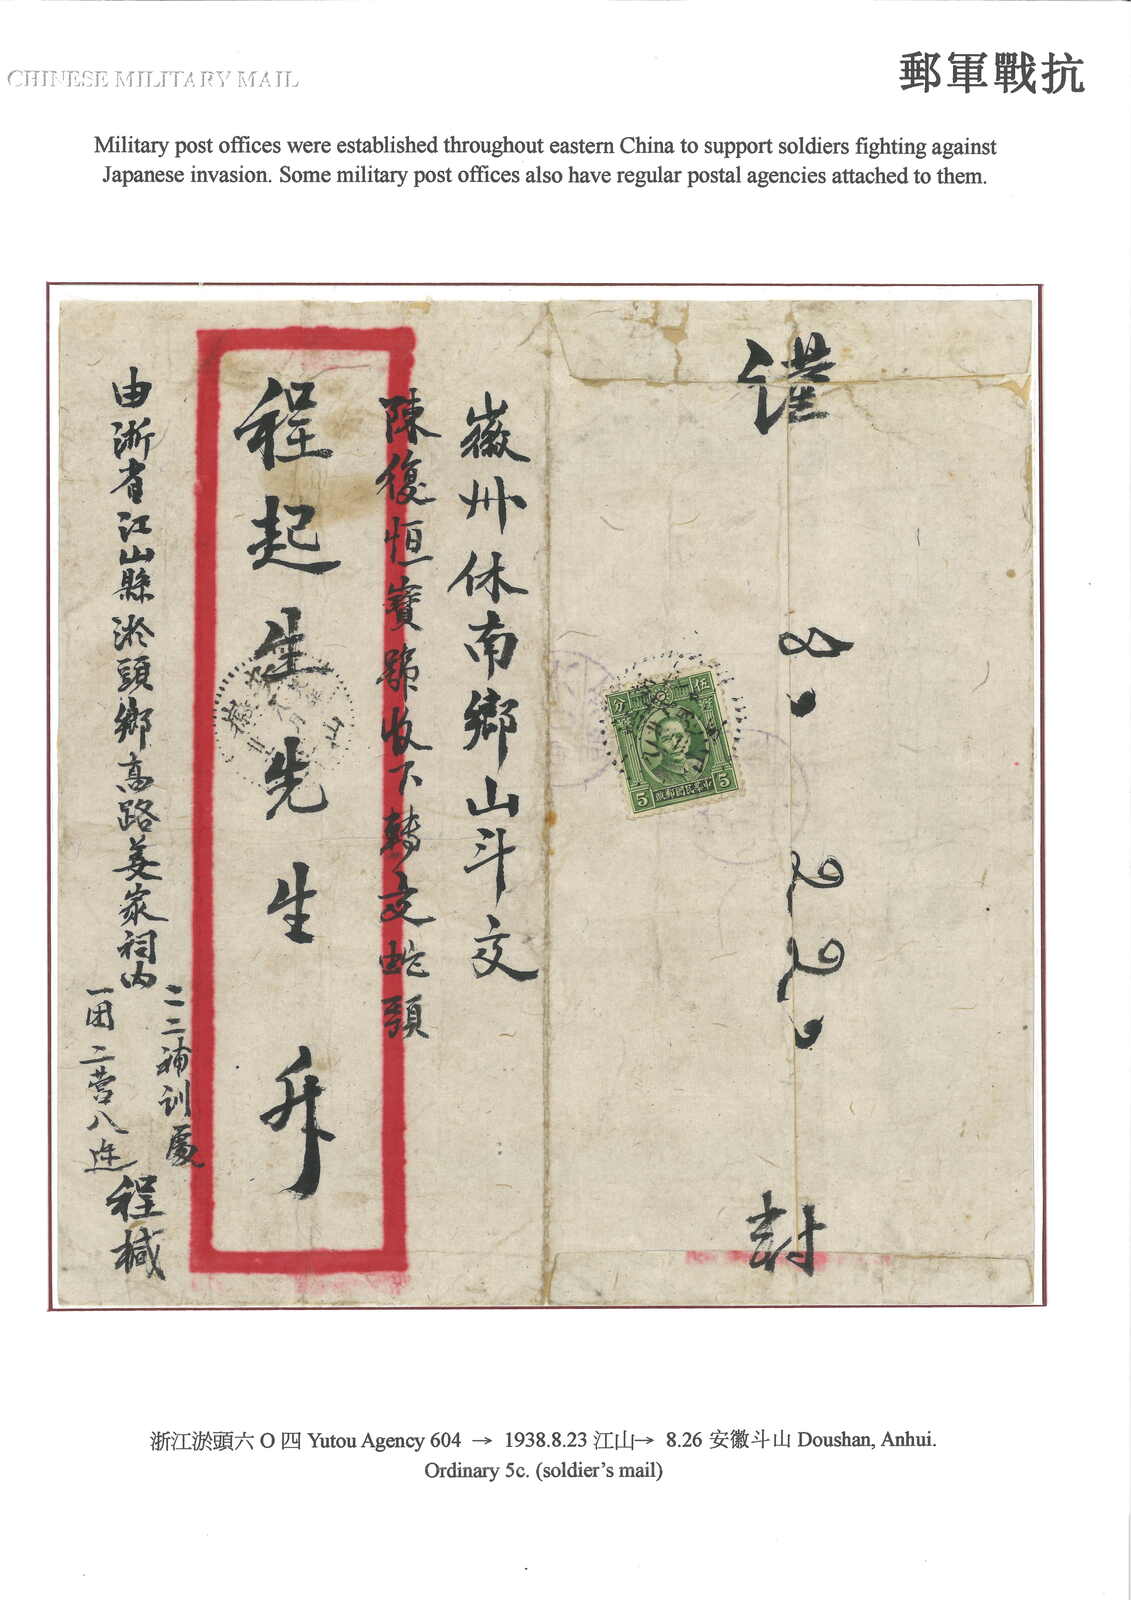 CHINESE MILITARY MAIL
郵軍戰抗
Military post offices were established throughout eastern China to support soldiers fighting against
Japanese invasion. Some military post offices also have regular postal agencies attached to them.
謹
8.
22.
封
徽州休南鄉山斗交
陳復恒寶號收下轉交蛇頭
程起生先生升
由浙省江山縣淤頭鄉高路姜家祠內
二二補训處
一团二营八连
程椷
伍
分
5
5
中華民國郵政
山
浙江淤頭六O四 Yutou Agency 604 → 1938.8.23 江山→ 8.26 安徽斗山 Doushan, Anhui.
Ordinary 5c. (soldier's mail)